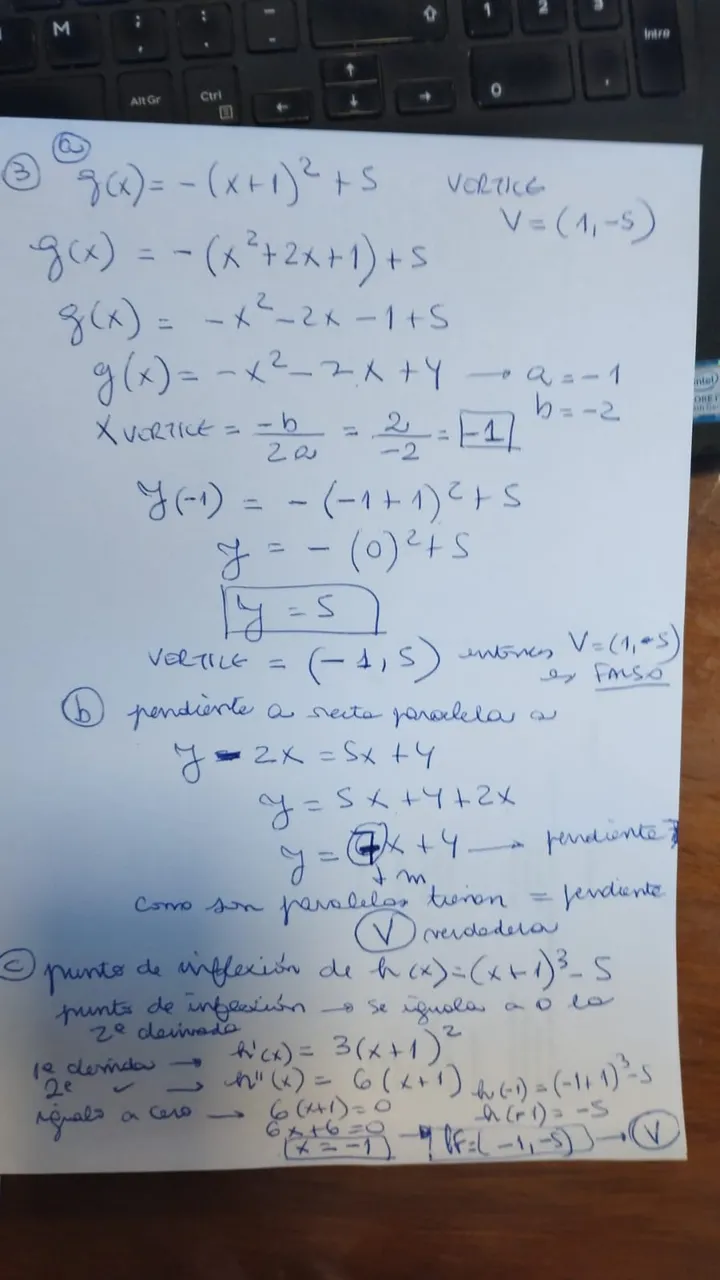 M
;
,
:
.
-
_
⇧
1
2
3
Intro
Alt Gr
Ctrl
←
↑
↓
→
0
,
intel
③ ⓐ
g(x) = - (x+1)² + 5 VERTICE
V = (1, -5)
g(x) = - (x²+2x+1) + 5
g(x) = -x² - 2x - 1 + 5
g(x) = -x² - 2x + 4 → a = -1
b = -2
X VERTICE = -b/2a = 2/-2 = -1
y(-1) = - (-1+1)² + 5
y = - (0)² + 5
y = 5
VERTICE = (-1, 5) entonces V = (1, -5)
es FALSO
ⓑ pendiente a recta paralela a
y - 2x = 5x + 4
y = 5x + 4 + 2x
y = 7x + 4 → pendiente 7
m
como son paralelas tienen = pendiente
Ⓥ verdadera
ⓒ punto de inflexión de h(x) = (x+1)³ - 5
punto de inflexión → se iguala a 0 la
2ª derivada
1ª derivada → h'(x) = 3(x+1)²
2ª ✓ → h''(x) = 6(x+1) h(-1) = (-1+1)³ - 5
igualo a cero → 6(x+1) = 0 h(-1) = -5
6x+6=0
x = -1 → PF = (-1, -5) → Ⓥ